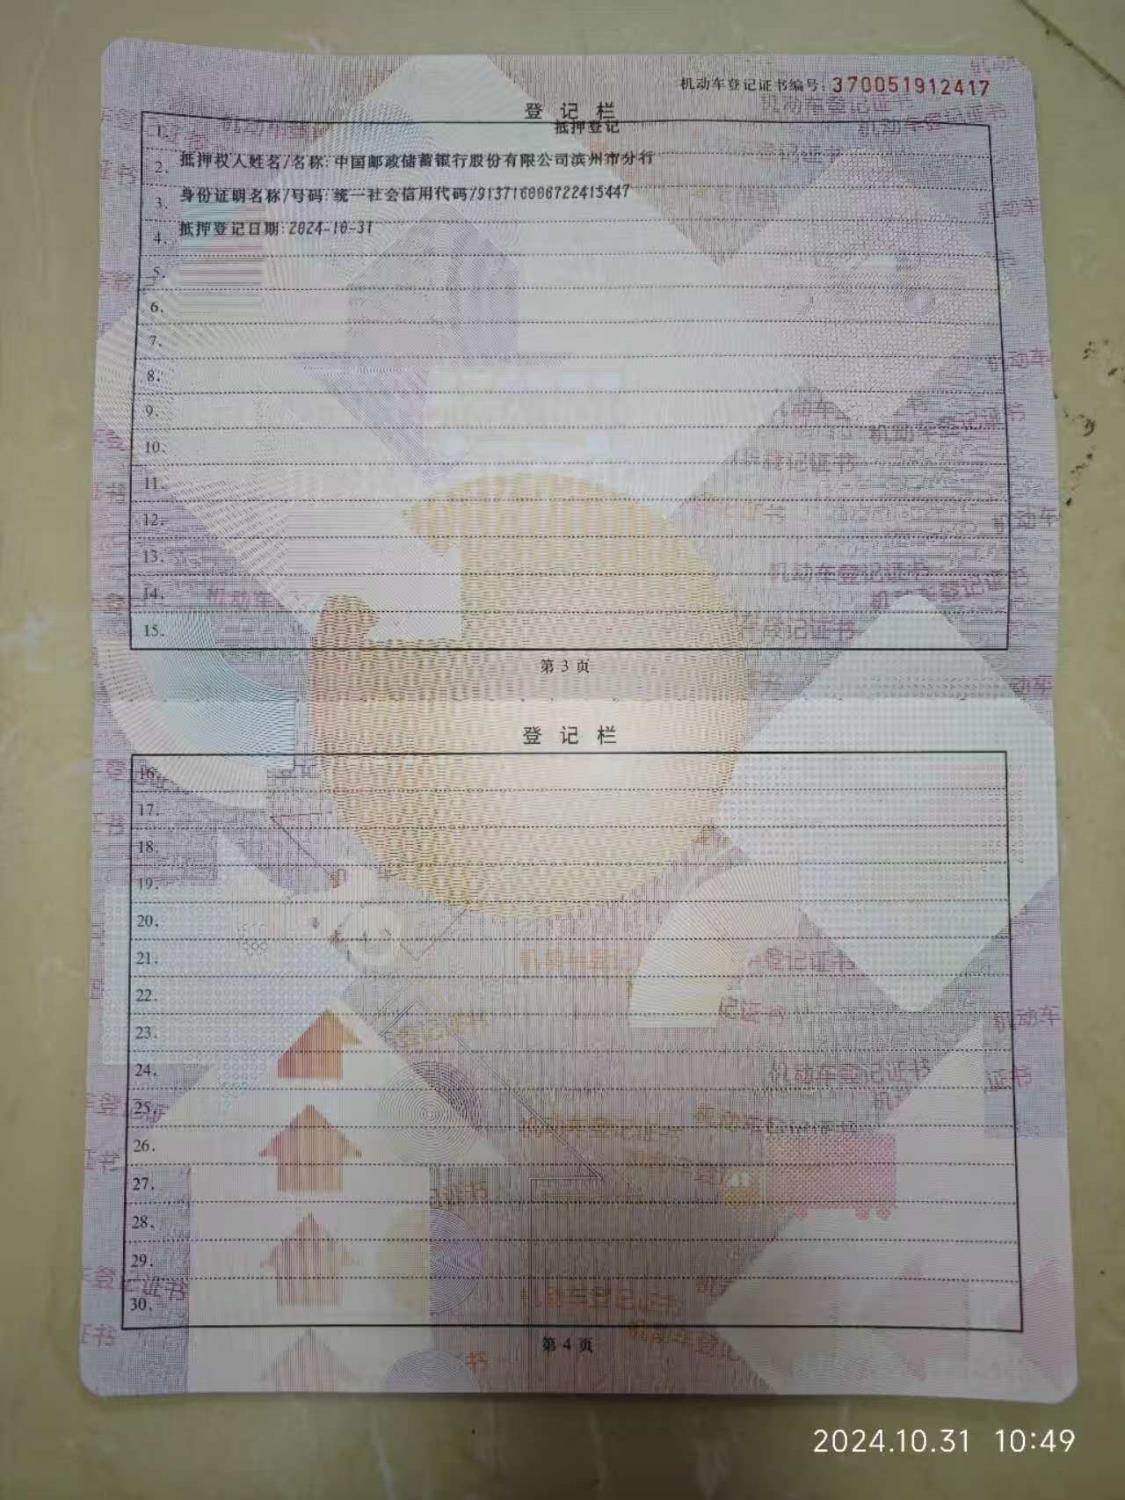 机动车登记证书编号：370051912417
登 记 栏
抵押登记
1.
2. 抵押权人姓名/名称:中国邮政储蓄银行股份有限公司滨州市分行
3. 身份证明名称/号码:统一社会信用代码/913716006722415447
4. 抵押登记日期:2024-10-31
5.
6.
7.
8.
9.
10.
11.
12.
13.
14.
15.
第 3 页
登 记 栏
16.
17.
18.
19.
20.
21.
22.
23.
24.
25.
26.
27.
28.
29.
30.
第 4 页
2024.10.31 10:49